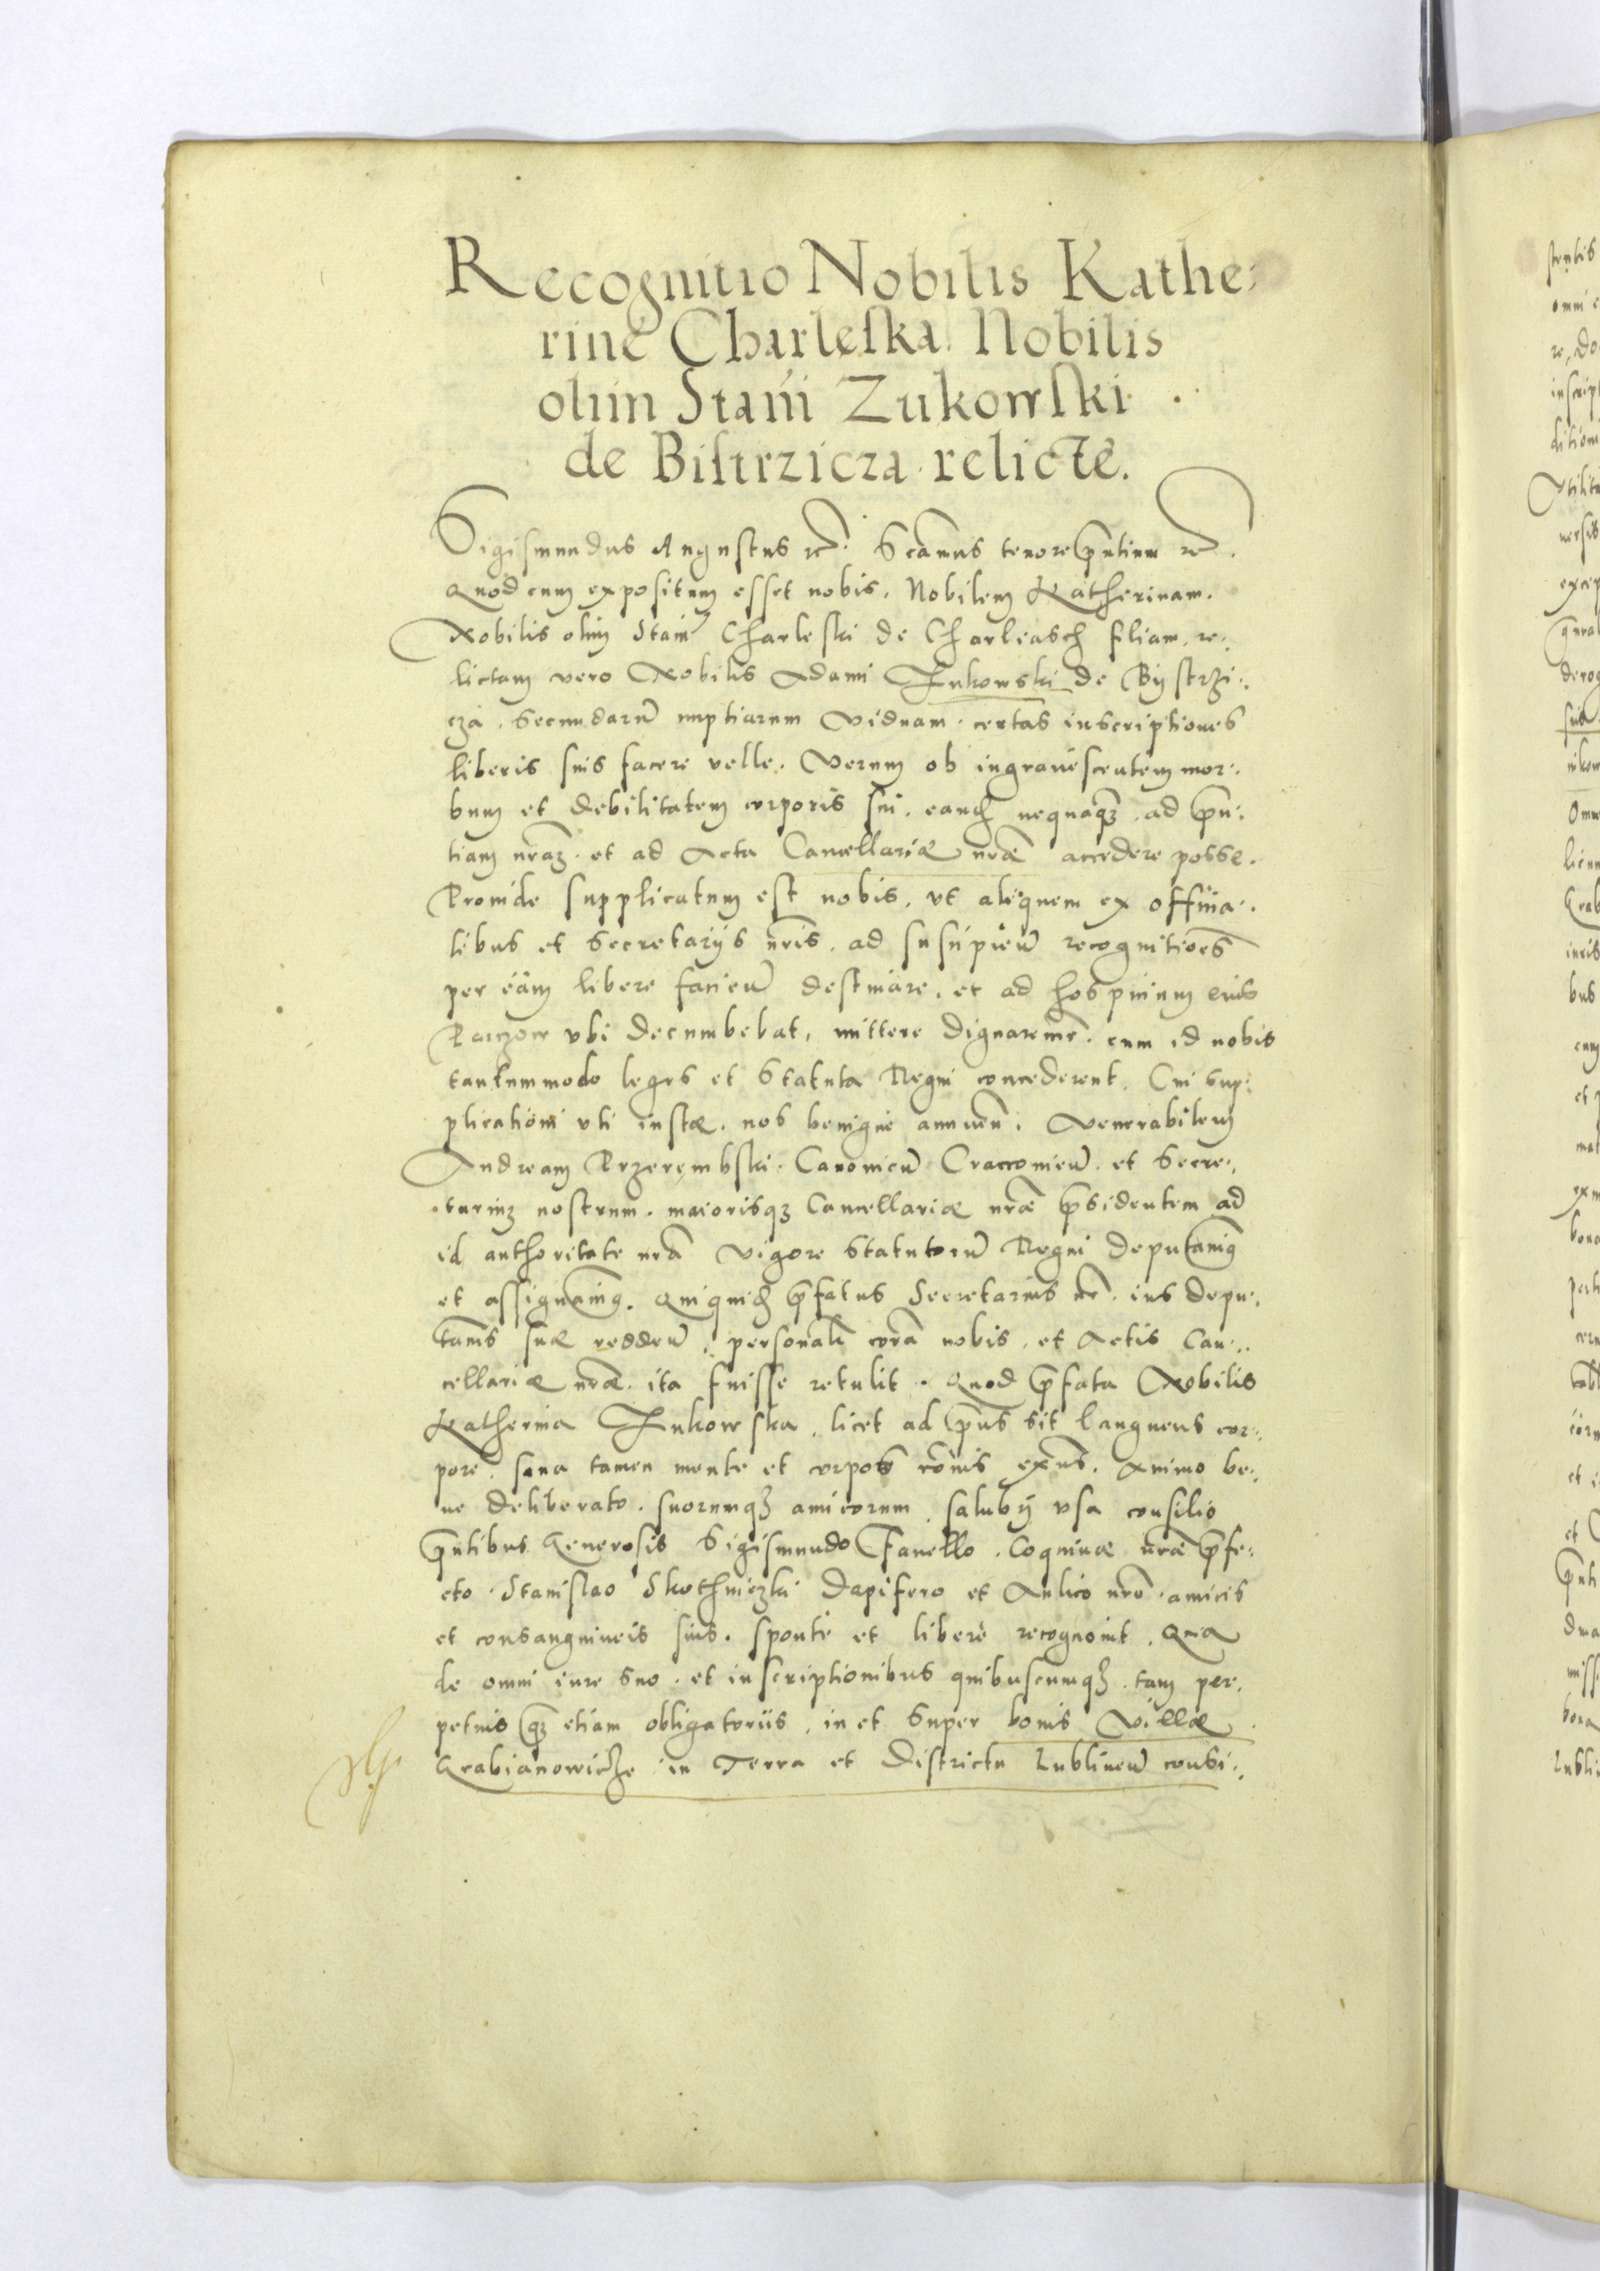 Recognitio Nobilis Kathe:
rine Charleska Nobilis
olim Stani Zukowski
de Bistrzicza relicte.
Sigismundus Augustus rc. Scamus tenore pntium rc.
Quod cum expositum esset nobis. Nobilem Katherinam.
Nobilis olim Stani Charleski de Charleasch filiam re:
lictam vero Nobilis Adami Zukowski de Bystrzi:
cza. secundarum nuptiarum viduam. certas inscriptiones
liberis suis facere velle. Verum ob ingravescentem mor:
bum et debilitatem corporis sui. eandem nequaqz. ad pn:
tiam nraz. et ad Acta Cancellariæ nræ accedere posse.
Proinde supplicatum est nobis, ut aliquem ex officia:
libus et Secretariis nris. ad suscipien recognitioes
per eam libere facien destinare. et ad hospicium eius
ubi decumbebat, mittere dignaremr. cum id nobis
tantummodo leges et Statuta Regni concederent. Cui sup:
plicationi uti iustæ. nos benigne annuen. Venerabilem
Andream Przerembski. Canonicum Cracovien. et Secre:
tarium nostrum. maiorisqz Cancellariæ nræ psidentem ad
id authoritate nra vigore Statutorum Regni deputavimus
et assignavimus. Quiquidem pfatus Secretarius nr. ius depu:
tanis suæ redden, personalr cora nobis. et Actis Can:
cellariæ nræ. ita fuisse retulit. Quod pfata Nobilis
Katherina Zukowska, licet ad pns sit languens cor:
pore. sana tamen mente et compos ronis exns. Animo be:
ne deliberato. suorumqz amicorum. salubri usa consilio
pntibus Generosis Sigismundo Fanello. Coquinæ nræ pfe:
cto. Stanislao Skothniczki Dapifero et Aulico nro. amicis
et consanguineis suis. sponte et libere recognovit. Quia
de omni iure suo. et inscriptionibus quibuscumqz. tam per:
petuis qz etiam obligatoriis, in et super bonis Villæ
Krabianowicze in Terra et Districtu Lublinen consi: